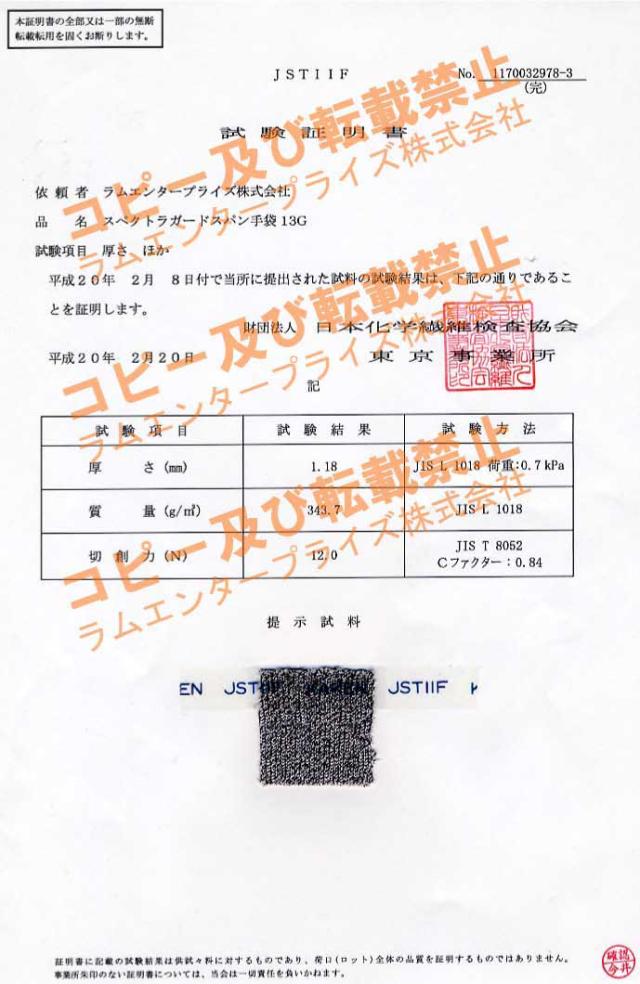 本証明書の全部又は一部の無断
転載転用を固くお断りします。
JSTIIF
No. 1170032978-3
(完)
試験証明書
依頼者 ラムエンタープライズ株式会社
品名 スペクトラガードスパン手袋13G
試験項目 厚さ、ほか
平成20年 2月 8日付で当所に提出された試料の試験結果は、下記の通りであるこ
とを証明します。
財団法人 日本化学繊維検査協会
平成20年 2月20日 東京事業所
記
試験項目 試験結果 試験方法
厚さ(mm) 1.18 JIS L 1018 荷重:0.7kPa
質量(g/㎡) 343.7 JIS L 1018
切創力(N) 12.0 JIS T 8052
Cファクター:0.84
提示試料
EN JSTIIF KAKEN JSTIIF K
証明書に記載の試験結果は供試々料に対するものであり、荷口(ロット)全体の品質を証明するものではありません。
事業所朱印のない証明書については、当会は一切責任を負いかねます。
確認
今井
コピー及び転載禁止
ラムエンタープライズ株式会社
コピー及び転載禁止
ラムエンタープライズ株式会社
コピー及び転載禁止
ラムエンタープライズ株式会社